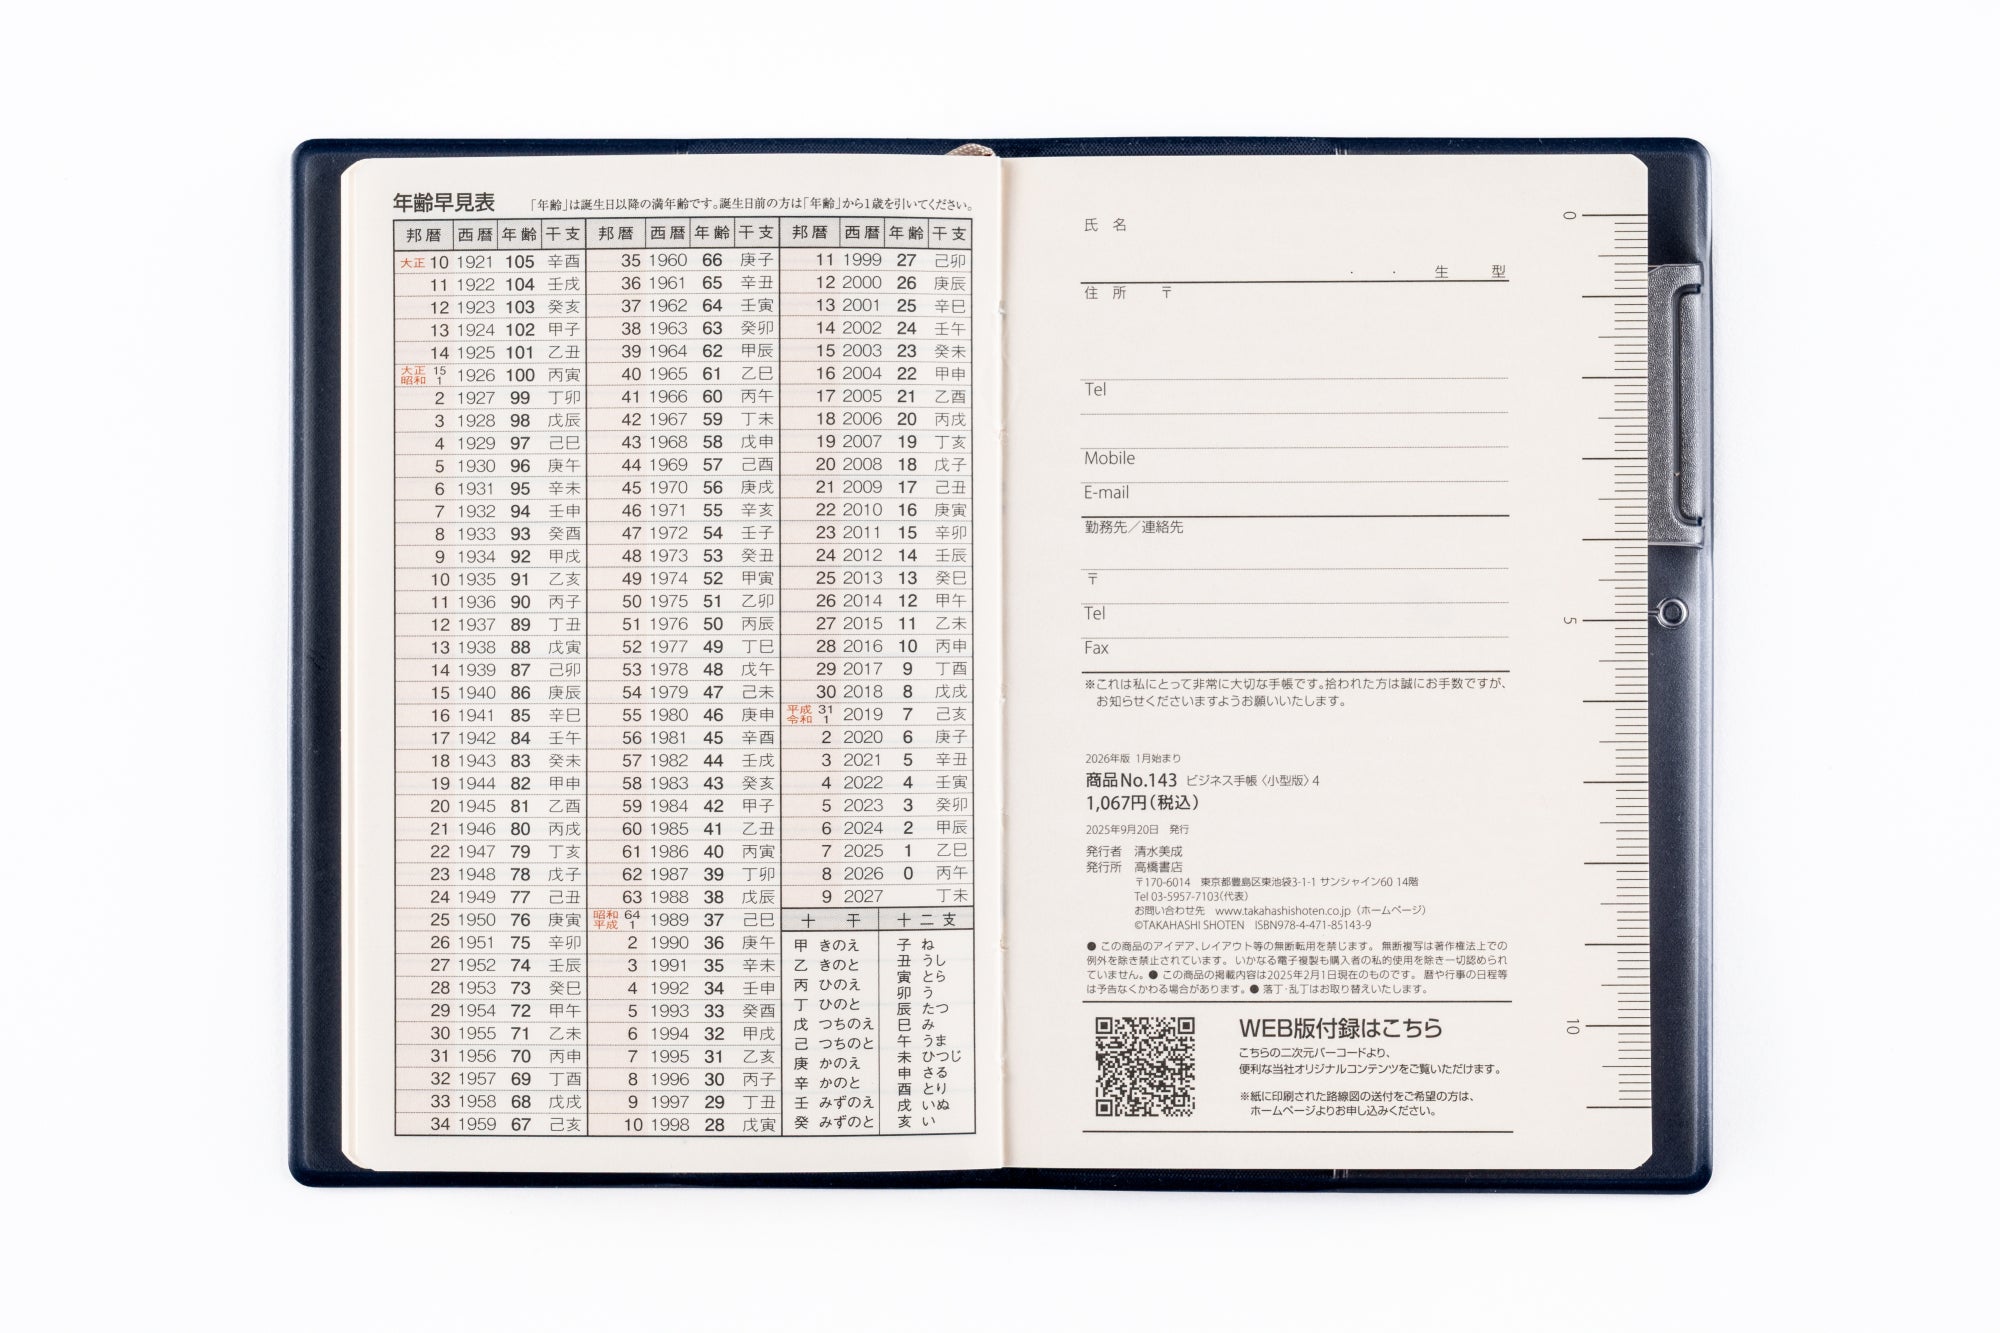 年齢早見表 「年齢」は誕生日以降の満年齢です。誕生日前の方は「年齢」から1歳を引いてください。
邦暦 西暦 年齢 干支 邦暦 西暦 年齢 干支 邦暦 西暦 年齢 干支
大正 10 1921 105 辛酉 35 1960 66 庚子 11 1999 27 己卯
11 1922 104 壬戌 36 1961 65 辛丑 12 2000 26 庚辰
12 1923 103 癸亥 37 1962 64 壬寅 13 2001 25 辛巳
13 1924 102 甲子 38 1963 63 癸卯 14 2002 24 壬午
14 1925 101 乙丑 39 1964 62 甲辰 15 2003 23 癸未
大正 15 昭和 1 1926 100 丙寅 40 1965 61 乙巳 16 2004 22 甲申
2 1927 99 丁卯 41 1966 60 丙午 17 2005 21 乙酉
3 1928 98 戊辰 42 1967 59 丁未 18 2006 20 丙戌
4 1929 97 己巳 43 1968 58 戊申 19 2007 19 丁亥
5 1930 96 庚午 44 1969 57 己酉 20 2008 18 戊子
6 1931 95 辛未 45 1970 56 庚戌 21 2009 17 己丑
7 1932 94 壬申 46 1971 55 辛亥 22 2010 16 庚寅
8 1933 93 癸酉 47 1972 54 壬子 23 2011 15 辛卯
9 1934 92 甲戌 48 1973 53 癸丑 24 2012 14 壬辰
10 1935 91 乙亥 49 1974 52 甲寅 25 2013 13 癸巳
11 1936 90 丙子 50 1975 51 乙卯 26 2014 12 甲午
12 1937 89 丁丑 51 1976 50 丙辰 27 2015 11 乙未
13 1938 88 戊寅 52 1977 49 丁巳 28 2016 10 丙申
14 1939 87 己卯 53 1978 48 戊午 29 2017 9 丁酉
15 1940 86 庚辰 54 1979 47 己未 30 2018 8 戊戌
16 1941 85 辛巳 55 1980 46 庚申 平成 31 令和 1 2019 7 己亥
17 1942 84 壬午 56 1981 45 辛酉 2 2020 6 庚子
18 1943 83 癸未 57 1982 44 壬戌 3 2021 5 辛丑
19 1944 82 甲申 58 1983 43 癸亥 4 2022 4 壬寅
20 1945 81 乙酉 59 1984 42 甲子 5 2023 3 癸卯
21 1946 80 丙戌 60 1985 41 乙丑 6 2024 2 甲辰
22 1947 79 丁亥 61 1986 40 丙寅 7 2025 1 乙巳
23 1948 78 戊子 62 1987 39 丁卯 8 2026 0 丙午
24 1949 77 己丑 63 1988 38 戊辰 9 2027 丁未
25 1950 76 庚寅 昭和 64 平成 1 1989 37 己巳
26 1951 75 辛卯 2 1990 36 庚午
27 1952 74 壬辰 3 1991 35 辛未
28 1953 73 癸巳 4 1992 34 壬申
29 1954 72 甲午 5 1993 33 癸酉
30 1955 71 乙未 6 1994 32 甲戌
31 1956 70 丙申 7 1995 31 乙亥
32 1957 69 丁酉 8 1996 30 丙子
33 1958 68 戊戌 9 1997 29 丁丑
34 1959 67 己亥 10 1998 28 戊寅
十干 十二支
甲 きのえ
乙 きのと
丙 ひのえ
丁 ひのと
戊 つちのえ
己 つちのと
庚 かのえ
辛 かのと
壬 みずのえ
癸 みずのと
子 ね
丑 うし
寅 とら
卯 う
辰 たつ
巳 み
午 うま
未 ひつじ
申 さる
酉 とり
戌 いぬ
亥 い
氏 名
・ ・ 生 型
住 所 〒
Tel
Mobile
E-mail
勤務先／連絡先
〒
Tel
Fax
※これは私にとって非常に大切な手帳です。拾われた方は誠にお手数ですが、
お知らせくださいますようお願いいたします。
2026年版 1月始まり
商品No.143 ビジネス手帳〈小型版〉4
1,067円(税込)
2025年9月20日 発行
発行者 清水美成
発行所 高橋書店
〒170-6014 東京都豊島区東池袋3-1-1 サンシャイン60 14階
Tel 03-5957-7103(代表)
お問い合わせ先 www.takahashishoten.co.jp（ホームページ）
©TAKAHASHI SHOTEN ISBN978-4-471-85143-9
● この商品のアイデア、レイアウト等の無断転用を禁じます。 無断複写は著作権法上での
例外を除き禁止されています。 いかなる電子複製も購入者の私的使用を除き一切認められ
ていません。● この商品の掲載内容は2025年2月1日現在のものです。 暦や行事の日程等
は予告なくかわる場合があります。● 落丁・乱丁はお取り替えいたします。
WEB版付録はこちら
こちらの二次元バーコードより、
便利な当社オリジナルコンテンツをご覧いただけます。
※紙に印刷された路線図の送付をご希望の方は、
ホームページよりお申し込みください。
0
5
10